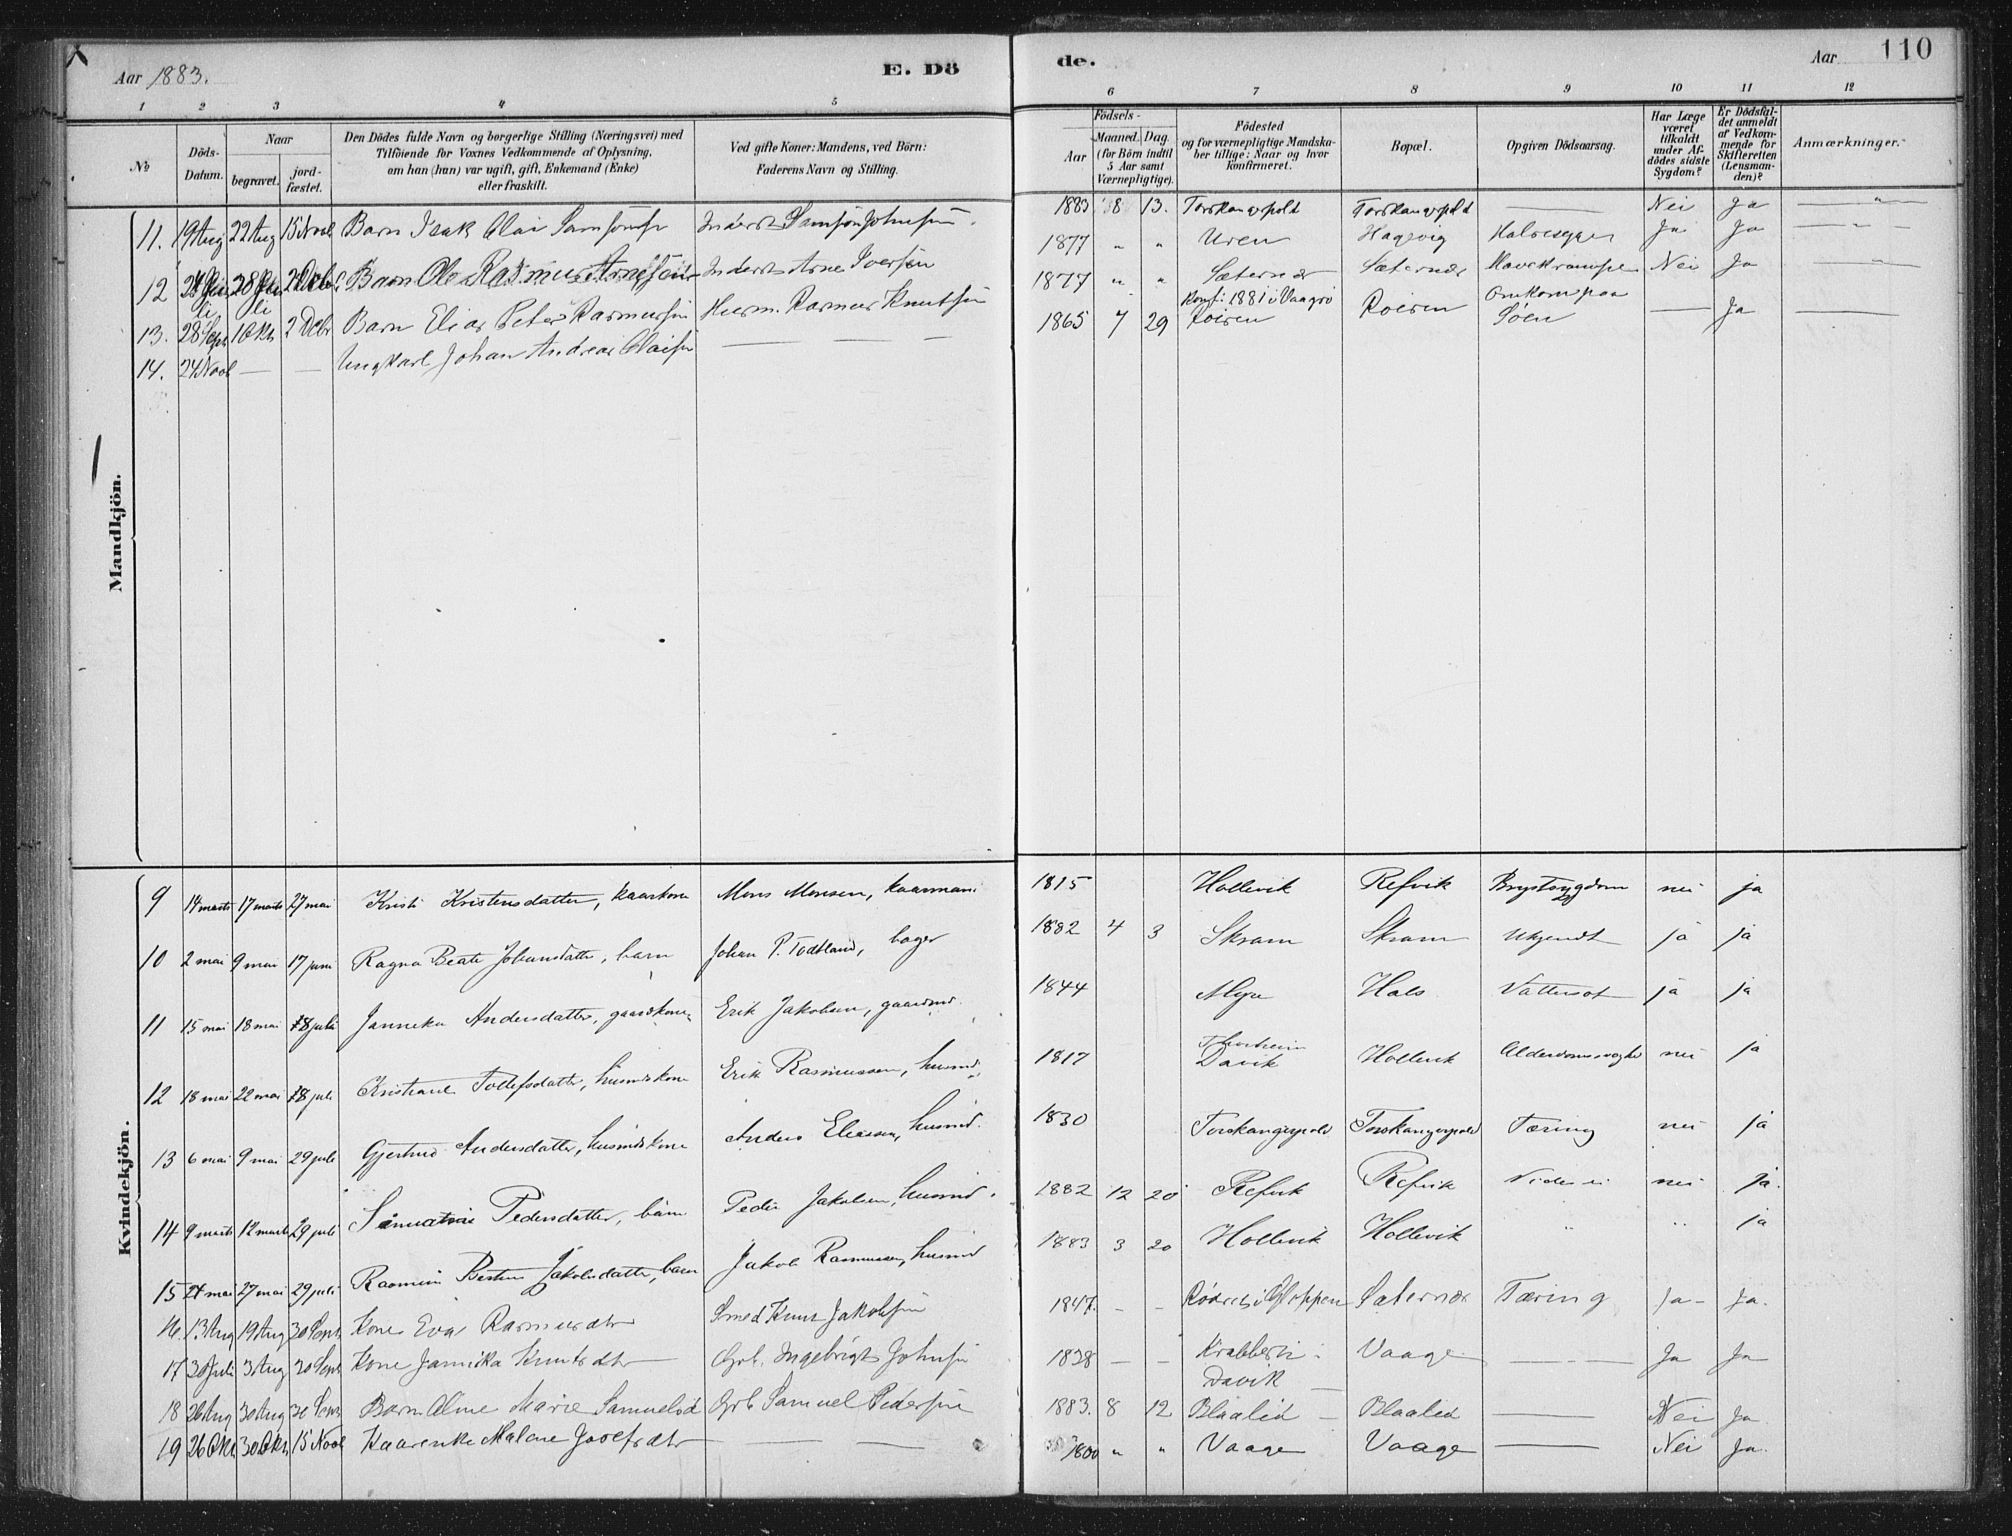 Aar 1883.
E. Dö
de.
Aar
110
1 2 3 4 5 6 7 8 9 10 11 12
No
Döds-Datum.
Naar
begravet.
jord-fæstet.
Den Dödes fulde Navn og borgerlige Stilling (Næringsvei) med
Tilföiende for Voxnes Vedkommende af Oplysning,
om han (hun) var ugift, gift, Enkemand (Enke)
eller fraskilt.
Ved gifte Koner: Mandens, ved Börn:
Faderens Navn og Stilling.
Födsels-
Aar
Maaned. Dag.
(for Börn indtil
5 Aar samt
Værnepligtige).
Födested
og for værnepligtige Mandska-
ber tillige: Naar og hvor
konfirmeret.
Bopæl.
Opgiven Dödsaarsag.
Har Læge
været
tilkaldt
under Af-
dödes sidste
Sygdom?
Er Dödsfal-
det anmeldt
af Vedkom-
mende for
Skifteretten
(Lensman-
den)?
Anmærkninger.
Mandkjön.
11. 19 Aug 22 Aug 15 Novb Barn Isak Olai Samsonss Inderst Samson Johnsön. 1883 8 13. Torskangerpold Torskangerpold — Nei Ja — " —
12 28 2 Decbr Barn Ole Rasmus Arnessön Inderst Arne Iversön 1877 " " Uren Hagevig Halvesyge Ja Ja — " —
13. 28 Sept 1 Okt 2 Decbr Barn Elias Peter Rasmussön Husm. Rasmus Knutsön 1877 " " Sæternæs Sæternæs Mavekrampe Nei Ja — " —
14. 24 Novb — — Ungkarl Johan Andreas Olaisön — — — 1865 7 29 Konf: 1881 i Vaagsö Roiren Roiren Omkom paa Söen — Ja —
Kvindekjön.
9 14 marts 17 marts 27 mai Kristi Kristensdatter, kaarkone Mons Monsen, kaarmand 1815 Hollevik Refvik Brystsygdom nei ja
10 2 mai 9 mai 17 juni Ragna Beate Johansdatter, barn Johan P. Todtland, bager 1882 4 3 Skram Skram Ukjendt ja ja
11 15 mai 18 mai 8 juli Jannika Andersdatter, gaardkone Erik Jakobsen, gaardmd. 1844 Myre Hals Vattersot ja ja
12 18 mai 22 mai 8 juli Kristiane Tollefsdatter, husmdskone Erik Rasmussen, husmd. 1817 Davik Hollevik Alderdomssvaghed nei ja
13 6 mai 9 mai 29 juli Gjertrud Andersdatter, husmdskone Anders Eliassen, husmd. 1830 Torskangerpold Torskangerpold Tæring nei ja
14 9 marts 12 marts 29 juli Pedersdatter, barn Peder Jakobsen, husmd. 1882 12 20 Refvik Refvik Vides ei nei ja.
15 24 mai 27 mai 29 juli Rasmine Jakobsdatter, barn Jakob Rasmussen, husmd 1883 3 20 Hollevik Hollevik " " ja
16. 13 Aug 19 Aug 30 Sept Kone Eva Rasmusdtr Smed Knut Jakobsön 1847. — — i Gloppen Sæternæs Tæring Ja — Ja.
17 30 Juli 3 Aug 30 Sept Kone Jannika Knutsdtr — Grb. Ingebrigt Johnsön 1838 — — Krabbestr i Davik Vaage — — — Ja Ja
18 26 Aug 30 Aug 30 Sept Barn Oline Marie Samuelsd Grb Samuel Pedersön 1883. 8 12 Blaalid — Blaalid — Nei Ja.
19 26 Okt 30 Okt 15 Novb Kaarenke Malene Josefsdtr — — — 1800 " " Vaage Vaage — Nei Ja.